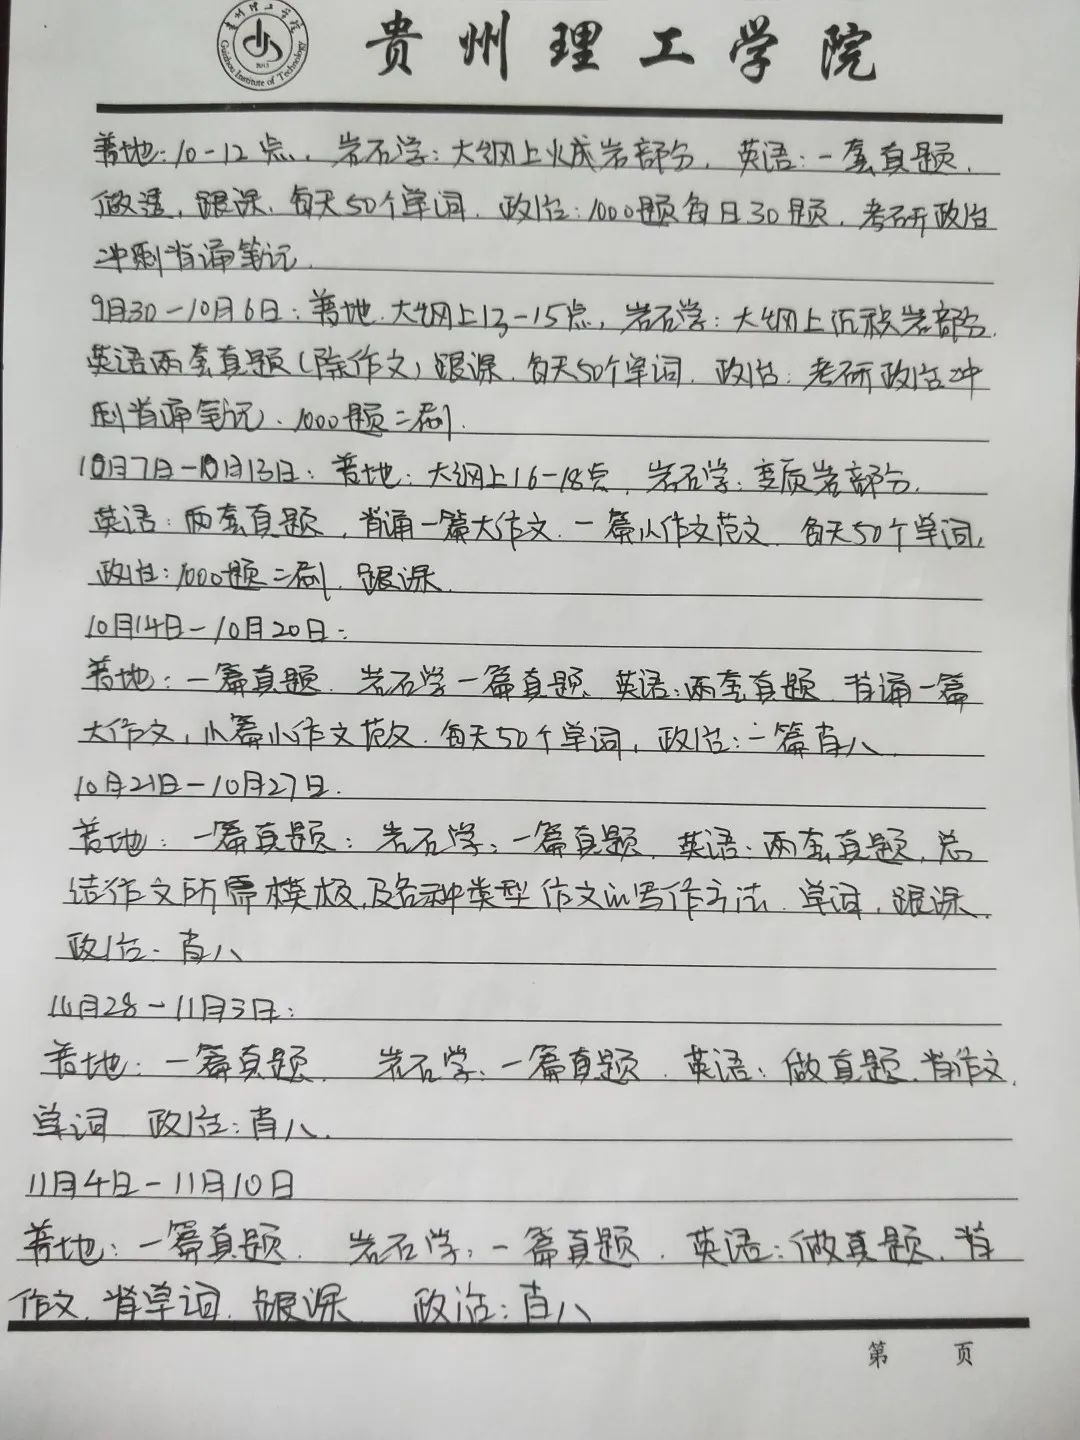 贵州理工学院
贵州理工学院
Guizhou Institute of Technology
2013
普地:10-12点、岩石学:大纲上火成岩部分、英语:一套真题、
做透,跟课、每天50个单词、政治:1000题每日30题、考研政治
冲刺背诵笔记.
9月30-10月6日:普地.大纲上13-15点,岩石学:大纲上沉积岩部分.
英语两套真题(除作文)跟课、每天50个单词、政治:考研政治冲
刺背诵笔记、1000题二刷.
10月7日-10月13日:普地:大纲上16-18点、岩石学:变质岩部分.
英语:两套真题,背诵一篇大作文.一篇小作文范文、每天50个单词,
政治:1000题二刷、跟课.
10月14日-10月20日:
普地:一篇真题、岩石学一篇真题、英语:两套真题、背诵一篇
大作文,小篇小作文范文.每天50个单词,政治:一篇肖八.
10月21日-10月27日.
普地:一篇真题:岩石学:一篇真题、英语:两套真题,总
结作文所需模板,及各种类型作文的写作方法、单词,跟课.
政治:肖八
10月28-11月3日:
普地:一篇真题、岩石学:一篇真题、英语:做真题、背作文、
单词 政治:肖八.
11月4日-11月10日
普地:一篇真题、岩石学:一篇真题、英语:做真题、背
作文、背单词、跟课 政治:肖八
第 页